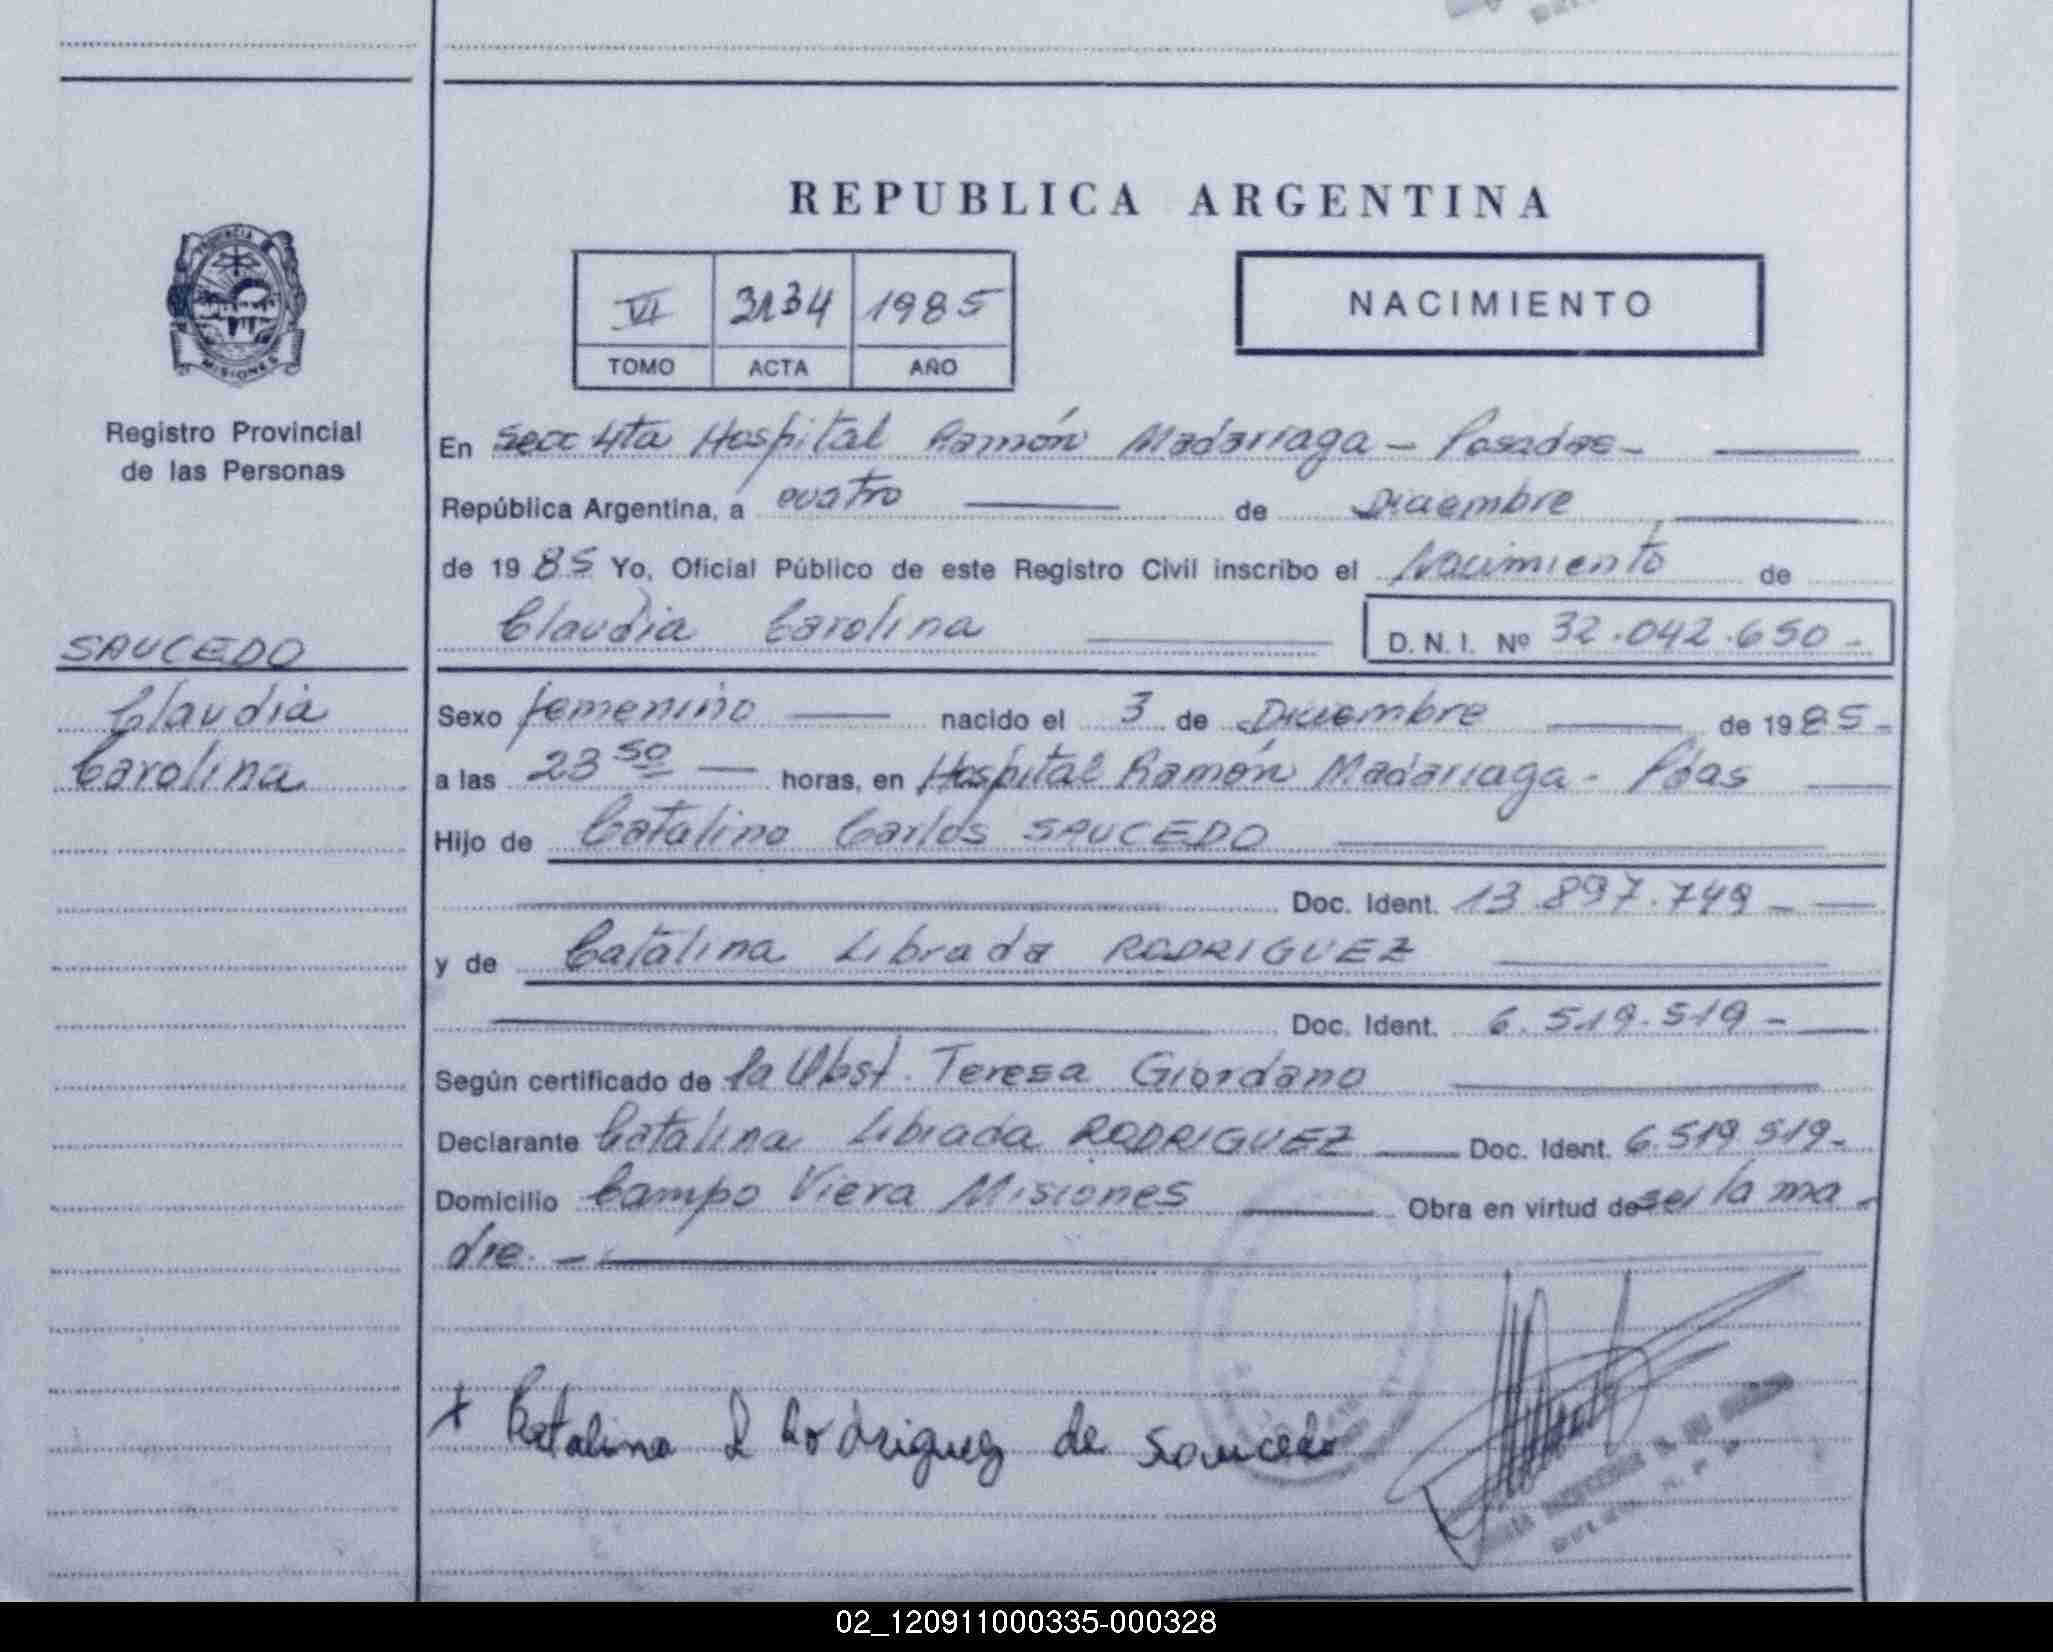 REPUBLICA ARGENTINA
PROVINCIA
MISIONES
VI 3134 1985
TOMO ACTA AÑO
NACIMIENTO
Registro Provincial
de las Personas
SAUCEDO
Claudia
Carolina
En Secc 4ta Hospital Ramón Madariaga - Posadas -
República Argentina, a cuatro de Diciembre
de 1985 Yo, Oficial Público de este Registro Civil inscribo el Nacimiento de
Claudia Carolina D. N. I. Nº 32.042.650 -
Sexo femenino nacido el 3 de Diciembre de 1985 -
a las 23 50 horas, en Hospital Ramón Madariaga - Pdas
Hijo de Catalino Carlos SAUCEDO
Doc. Ident. 13.897.749 -
y de Catalina Librada RODRIGUEZ
Doc. Ident. 6.519.519 -
Según certificado de la Obst. Teresa Giordano
Declarante Catalina Librada RODRIGUEZ Doc. Ident. 6.519.519 -
Domicilio Campo Viera Misiones Obra en virtud de ser la ma -
dre. -
x Catalina L Rodriguez de Saucedo
02_120911000335-000328